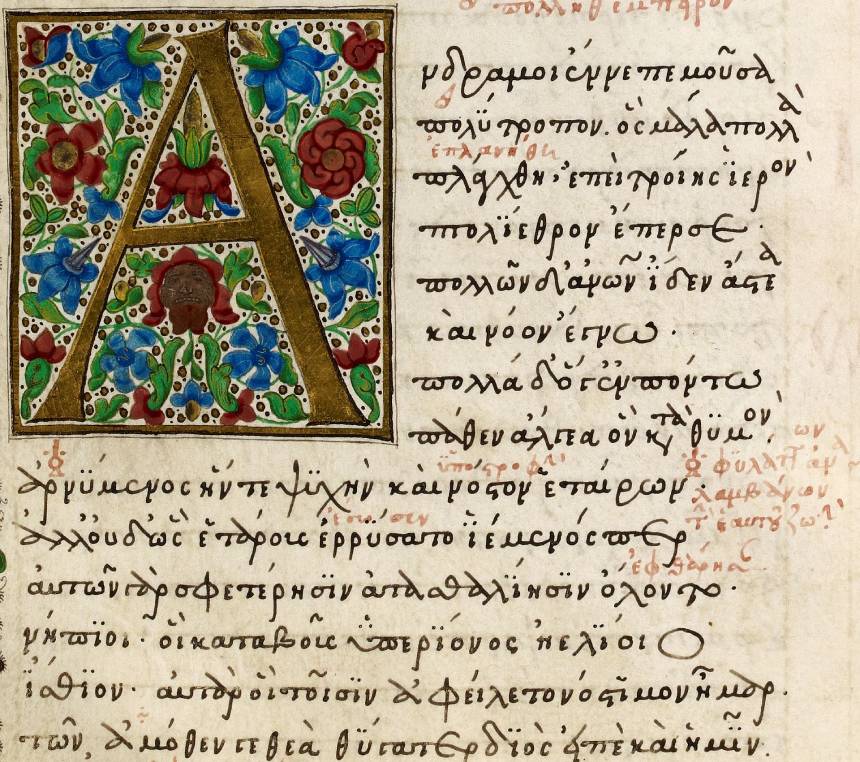 Ἀνδρα μοι ἔννεπε μοῦσα
πολύτροπον. ὃς μάλα πολλὰ
ἐπλανήθη
πλάγχθη, ἐπεὶ τροίης ἱερὸν
πτολίεθρον ἔπερσε·
πολλῶν δ' ἀνῶν ἴδεν ἄστεα
καὶ νόον ἔγνω·
πολλὰ δ' ὅγ' ἐν πόντω
πάθεν ἄλγεα ὃν κατὰ θυμὸν,
ἀρνύμενος ἥν τε ψυχὴν καὶ νόστον ἑταίρων·
λαμβάνων
ἀλλ' οὐδ' ὣς ἑτάροις ἐρρύσατο ἱέμενός περ
αὐτῶν γὰρ σφετέρησιν ἀτασθαλίησιν ὄλοντο·
νήπιοι· οἳ κατὰ βοῦς ὑπερίονος ἠελίοιο
ἤσθιον· αὐτὰρ ὁ τοῖσιν ἀφείλετο νόστιμον ἦμαρ.
τῶν, ἁμόθεν γε θεὰ θύγατερ διὸς εἰπὲ καὶ ἡμῖν.